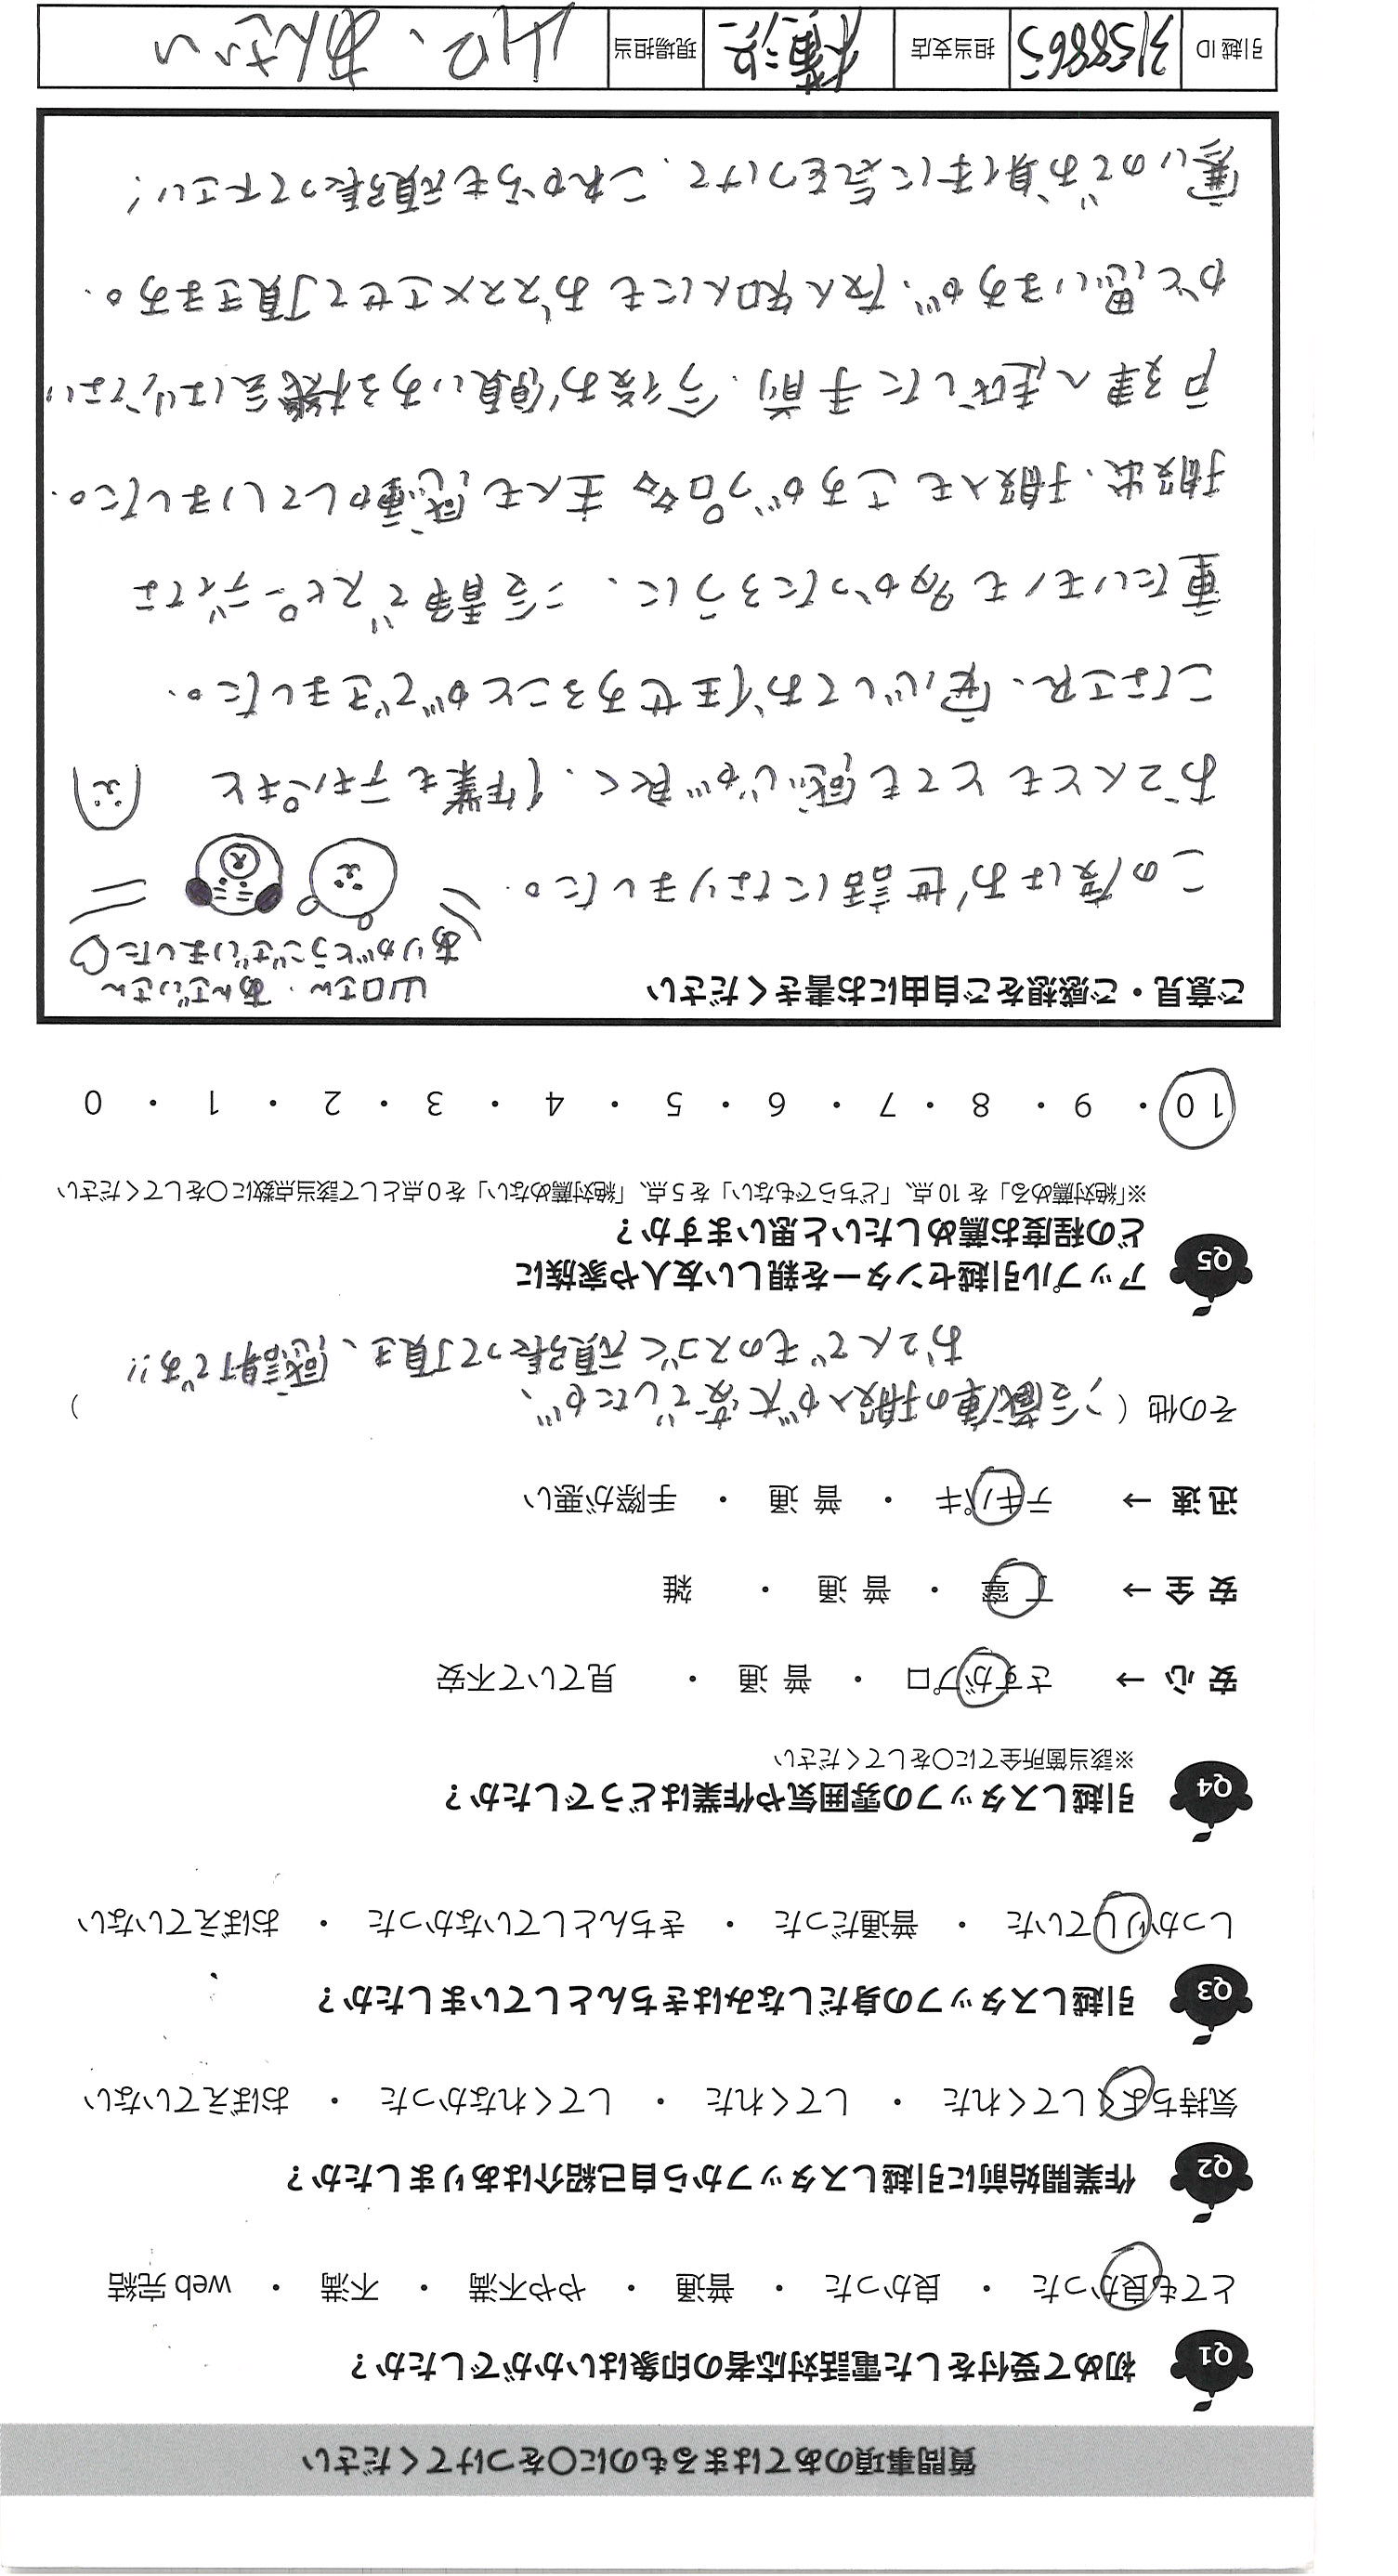 質問事項のあてはまるものに〇をつけてください
Q1 初めて受付をした電話対応者の印象はいかがでしたか？
とても良かった ・ 良かった ・ 普通 ・ やや不満 ・ 不満 ・ web 完結
Q2 作業開始前に引越しスタッフから自己紹介はありましたか？
気持ちよくしてくれた ・ してくれた ・ してくれなかった ・ おぼえていない
Q3 引越しスタッフの身だしなみはきちんとしていましたか？
しっかりしていた ・ 普通だった ・ きちんとしていなかった ・ おぼえていない
Q4 引越しスタッフの雰囲気や作業はどうでしたか？
※該当箇所全てに〇をしてください
安 心 → さすがプロ ・ 普 通 ・ 見ていて不安
安 全 → 丁 寧 ・ 普 通 ・ 雑
迅 速 → テキパキ ・ 普 通 ・ 手際が悪い
その他（ 冷蔵庫の搬入が大変でしたが、
お2人でものスゴく頑張って頂き、感謝です!! ）
Q5 アップル引越センターを親しい友人や家族に
どの程度お薦めしたいと思いますか？
※「絶対薦める」を 10 点、「どちらでもない」を 5 点、「絶対薦めない」を 0 点として該当点数に〇をしてください
10 ・ 9 ・ 8 ・ 7 ・ 6 ・ 5 ・ 4 ・ 3 ・ 2 ・ 1 ・ 0
ご意見・ご感想をご自由にお書きください
山口さん・あんざいさん
ありがとうございました♡
この度はお世話になりました。
お2人とも とても感じが良く、作業もテキパキと
こなされ、安心してお任せすることができました。
重たいモノも多かったろうに、冷静でスピーディでな
搬出、搬入も さすがプロ 主人も感動していました。
戸建へ越した手前、今後お願いする機会は少ない
かと思いますが、友人知人にもおススメさせて頂きます。
寒いのでお身体に気をつけて、これからも頑張って下さい！
引越 ID 3158865 担当支店 横浜 現場担当 山口、あんざい